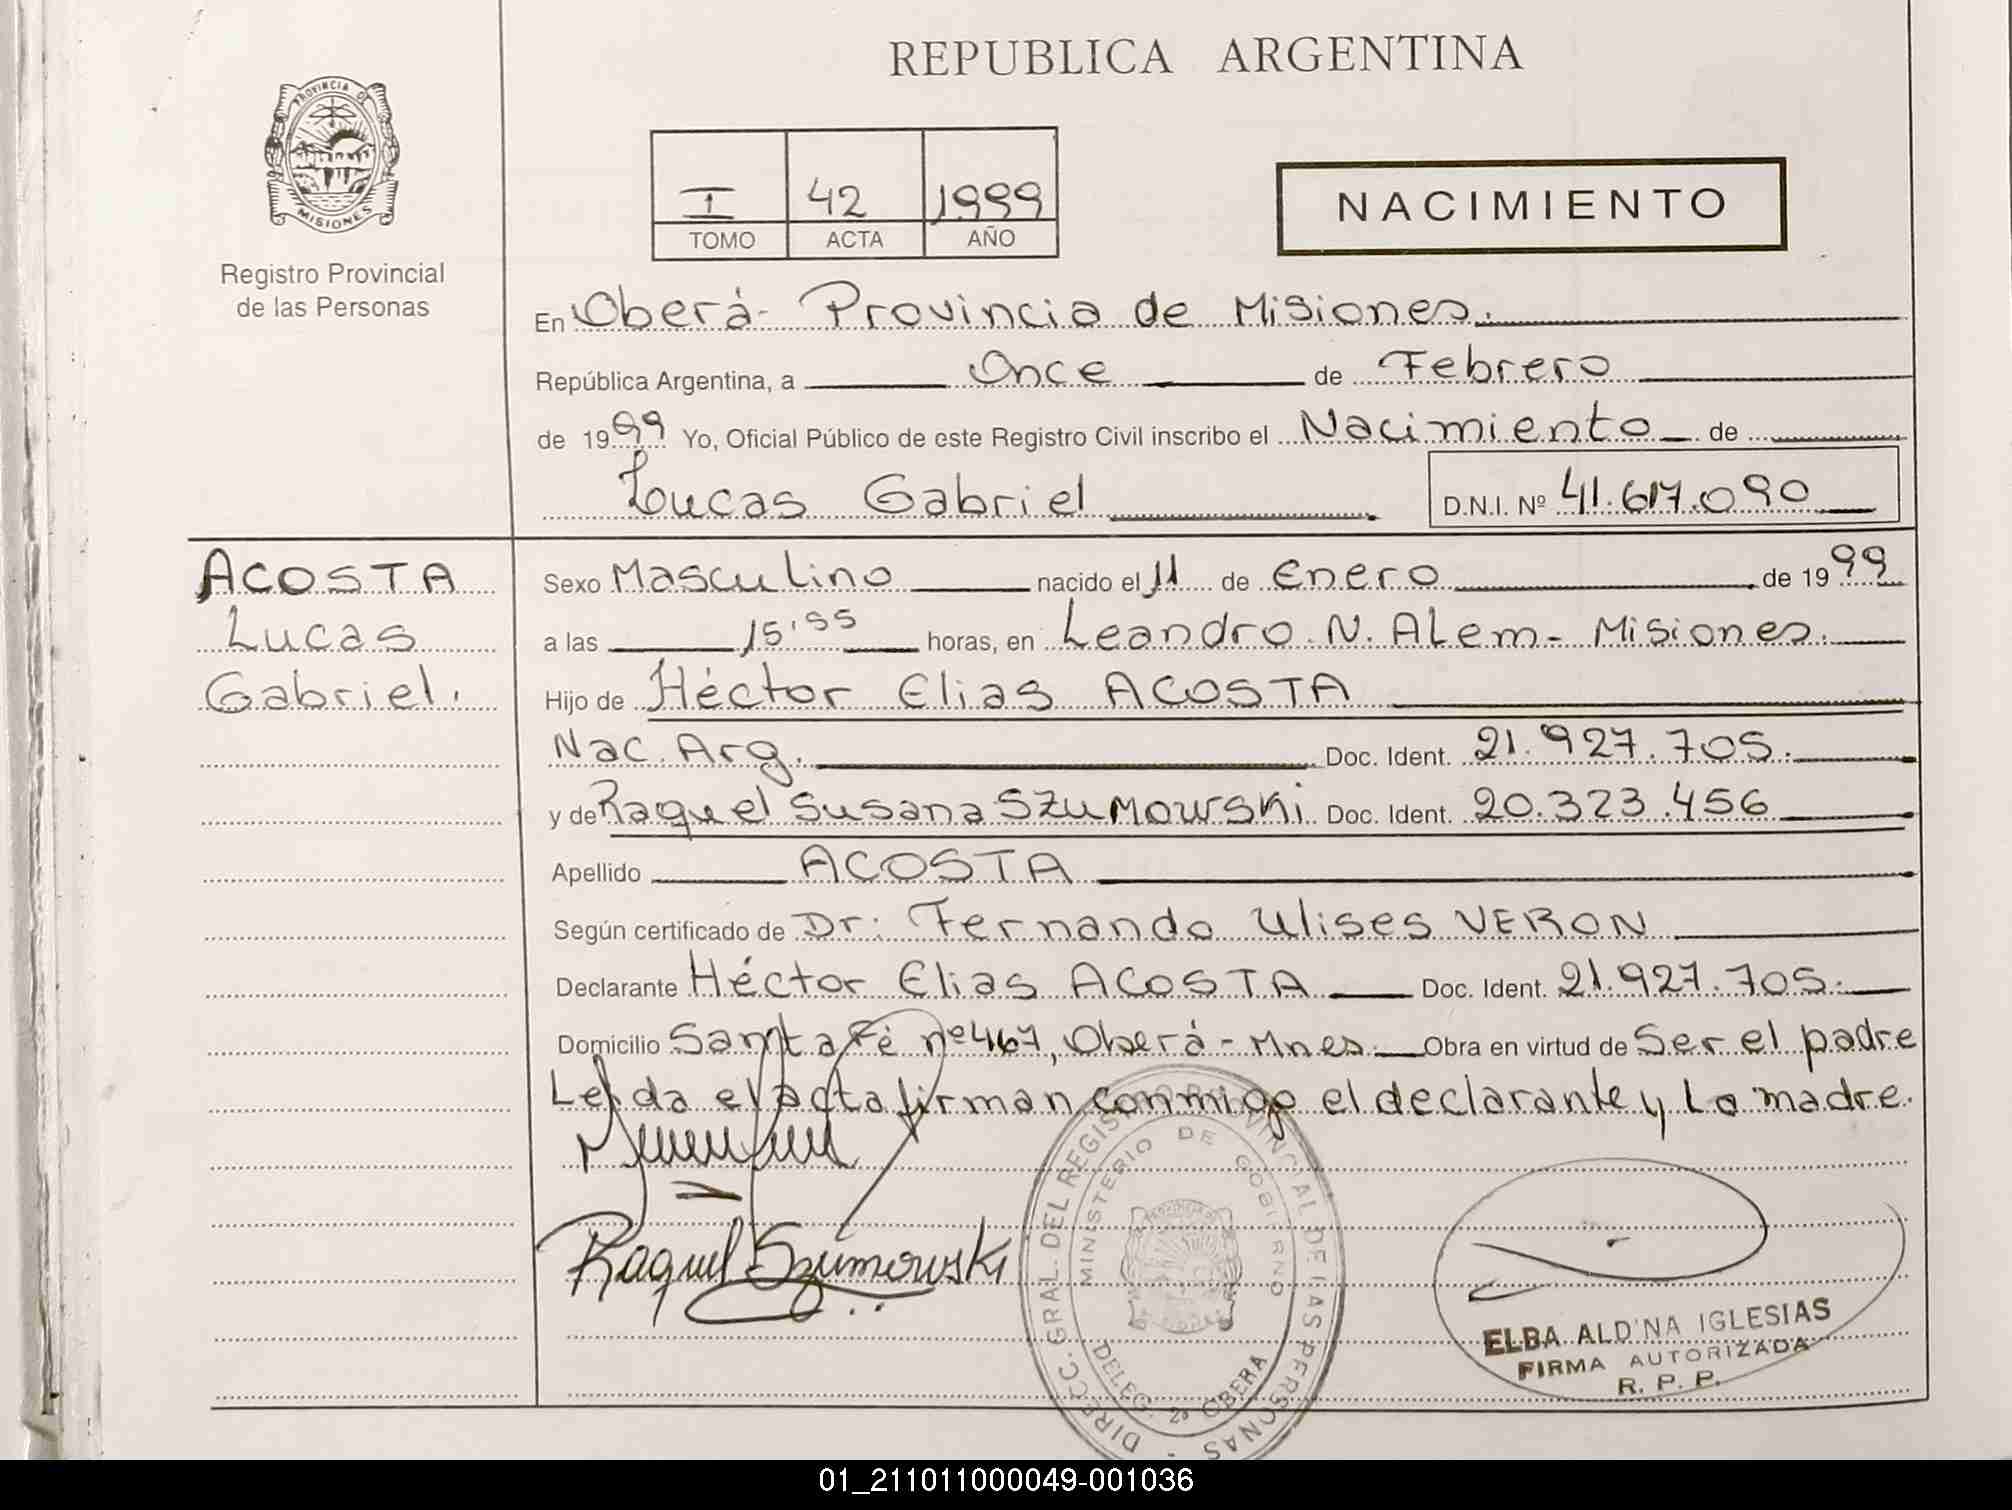 REPUBLICA ARGENTINA
PROVINCIA DE
MISIONES
Registro Provincial
de las Personas
I 42 1999
TOMO ACTA AÑO
NACIMIENTO
En Oberá - Provincia de Misiones.
República Argentina, a Once de Febrero
de 1999 Yo, Oficial Público de este Registro Civil inscribo el Nacimiento de
Lucas Gabriel D.N.I. Nº 41.617.090
ACOSTA
Lucas
Gabriel.
Sexo Masculino nacido el 11 de Enero de 1999
a las 15,55 horas, en Leandro N. Alem - Misiones.
Hijo de Héctor Elias ACOSTA
Nac. Arg. Doc. Ident. 21.927.705.
y de Raquel Susana SZUMOWSKI Doc. Ident. 20.323.456
Apellido ACOSTA
Según certificado de Dr: Fernando Ulises VERON
Declarante Héctor Elias ACOSTA Doc. Ident. 21.927.705.
Domicilio Santa Fé nº 467, Oberá - Mnes. Obra en virtud de Ser el padre
Leida el acta firman conmigo el declarante y la madre.
Raquel Szumowski
DIRECC. GRAL. DEL REGISTRO PROVINCIAL DE LAS PERSONAS
MINISTERIO DE GOBIERNO
DELEG. 2ª OBERA
ELBA ALDINA IGLESIAS
FIRMA AUTORIZADA
R. P. P.
01_211011000049-001036